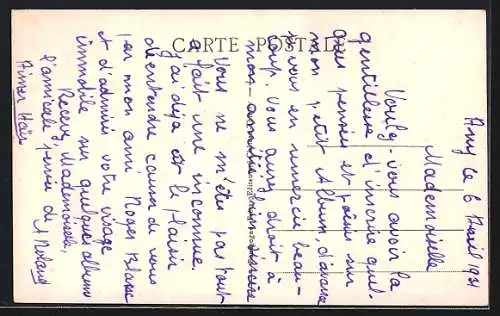 CARTE POSTALE
Amy le 6 Avril 1931
Mademoiselle
Voulez-vous avoir la
gentillesse d'inscrire quel-
ques pensées et poésies sur
mon petit Album, d'avance
je vous en remercie beau-
coup. Vous aurez droit à
mon amitié bien sincère
Vous ne m'êtes pas tout
à fait une inconnue.
J'ai déjà eu le plaisir
d'entendre causer de vous
par mon ami Roger
et d'admirer votre visage
immobile sur quelques albums
Recevez Mademoiselle,
l'amicale pensée de